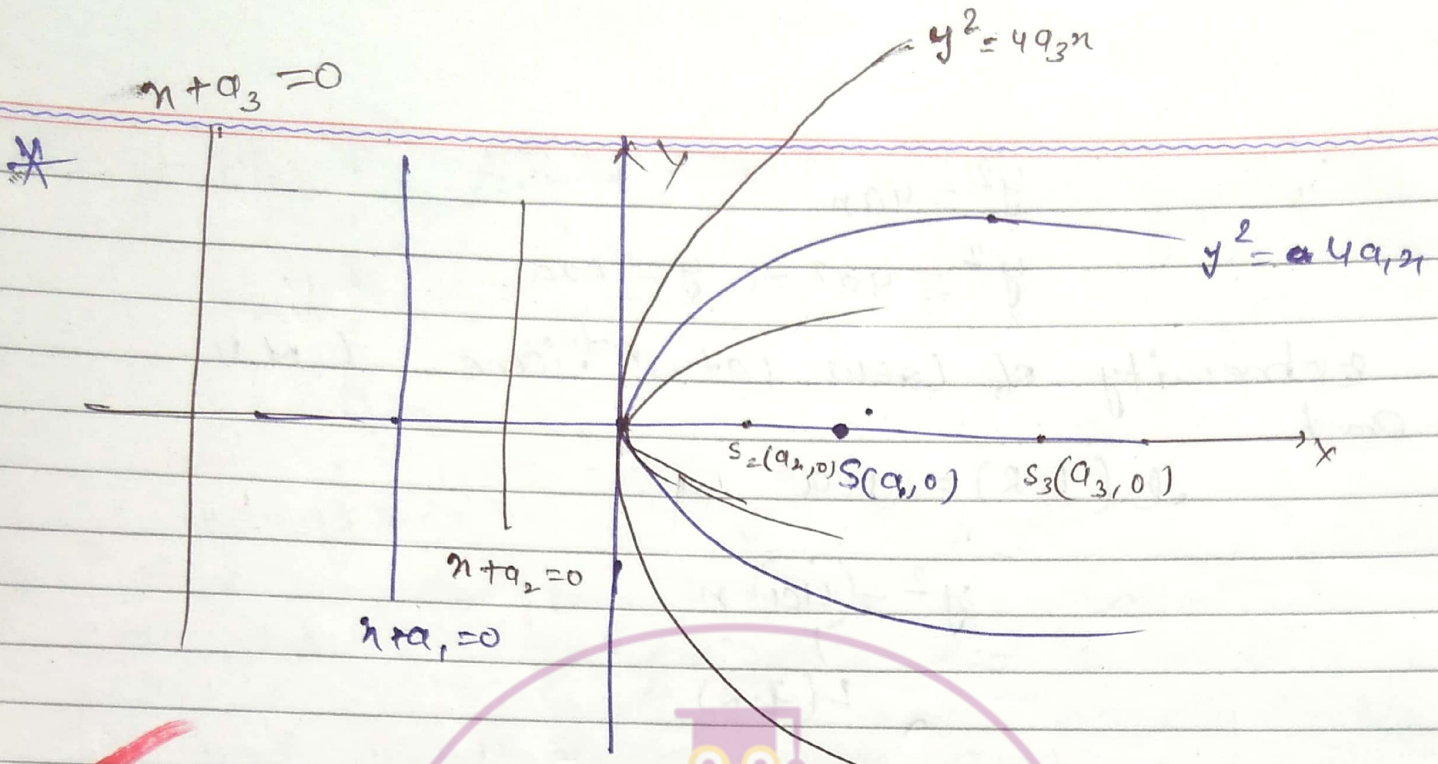 y² = 4a₃x
x + a₃ = 0
Y
y² = 4a₁x
S₂(a₂,0) S(a₁,0) S₃(a₃,0)
X
x + a₂ = 0
x + a₁ = 0